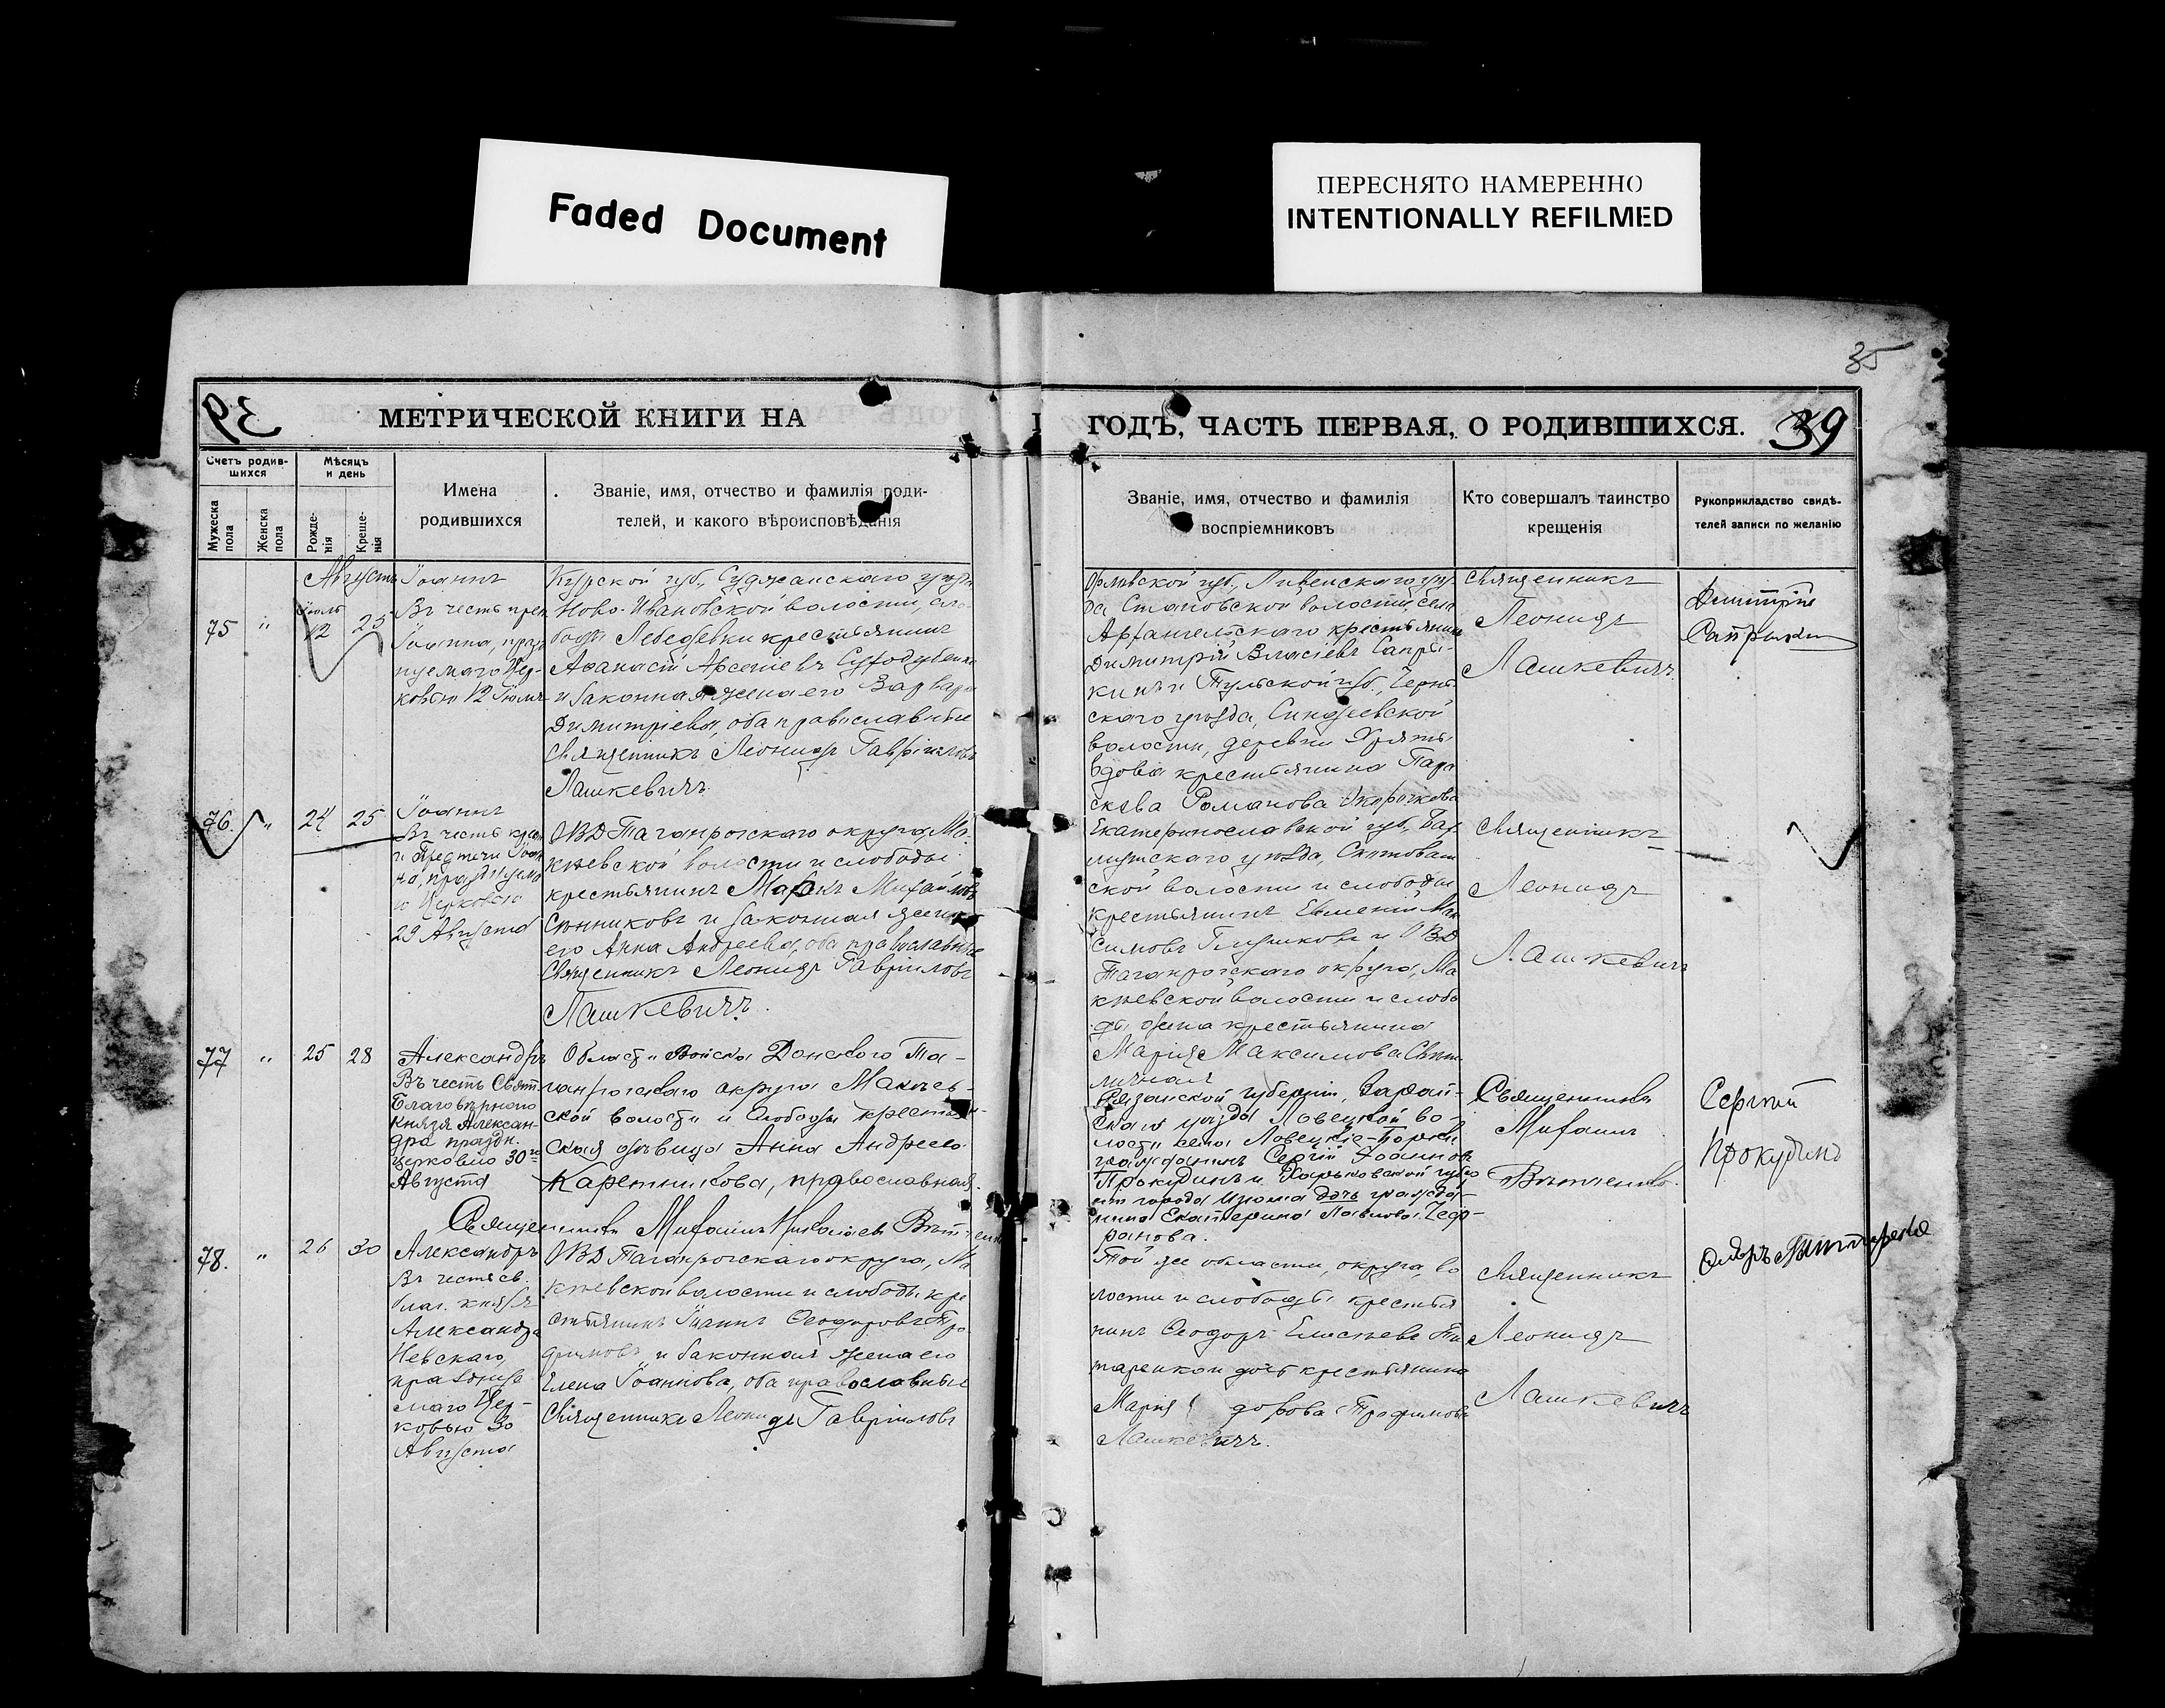 Faded Document
ПЕРЕСНЯТО НАМЕРЕННО
INTENTIONALLY REFILMED
35
39
МЕТРИЧЕСКОЙ КНИГИ НА
ГОДЪ, ЧАСТЬ ПЕРВАЯ, О РОДИВШИХСЯ.
39
Счетъ родив-
шихся
Мужеска
пола
Женска
пола
Мѣсяцъ
и день
Рожде-
нія
Креще-
нія
Имена
родившихся
Званіе, имя, отчество и фамилія роди-
телей, и какого вѣроисповѣданія
Званіе, имя, отчество и фамилія
воспріемниковъ
Кто совершалъ таинство
крещенія
Рукоприкладство свидѣ-
телей записи по желанію
Августъ
75
"
Іюль
12
25
Іоаннъ
Въ честь преп.
Іоанна, праздн
нуемаго Цер-
ковью 12 Іюля
Курской губ., Суджанскаго уѣзда
Ново-Ивановской волости, сло
боды Лебедевки крестьянинъ
Аѳанасій Арсеніевъ
и законная жена его Варвара
Димитріева, оба православные
Священникъ Леонидъ Гавріиловъ
Лашкевичъ.
Орловской губ., Ливенскаго уѣз
да, волости, села
Архангельскаго крестьянинъ
Димитрій Власіевъ Сапры-
кинъ и Тульской губ., Черн
скаго уѣзда,
волости, деревни
вдова крестьянина Пара
скева Романова
Священникъ
Леонидъ
Лашкевичъ.
Димитрій
Сапрыкин
76.
"
24
25
Іоаннъ
Въ честь крест
и Предтечи Іоан
на, празднуема
го Церковью
29 Августа
ОВД Таганрогскаго округа, Ма
кѣевской волости и слободы
крестьянинъ Михайловъ
и законная жена
его Анна Андреева, оба православные
Священникъ Леонидъ Гавріиловъ
Лашкевичъ.
Екатеринославской губ., Бах
мутскаго уѣзда,
ской волости и слободы
крестьянинъ Евменій Мак
симовъ Глушковъ и ОВД
Таганрогскаго округа, Ма
кѣевской волости и слобо
ды жена крестьянина
Марія Максимова
Священникъ
Леонидъ
Лашкевичъ
77
"
25
28
Александръ
Въ честь Свят.
Благовѣрнаго
Князя Алексан-
дра праздн.
церковію 30го
Августа
Области Войска Донского Та-
ганрогскаго округа Макѣев-
ской волости и слободы крестьян-
ская дѣвица Анна Андреева
Каретникова, православная.
Священникъ Михаилъ Николаевъ
Рязанской губерніи, Зарай-
скаго уѣзда Ловецкой во-
лости села Ловецкіе-Борки
гражданинъ Сергій Іоанновъ
Прокудинъ и Харьковской губер
ніи города Изюма дочь гражда-
нина Екатерина Павлова
Священникъ
Михаилъ
Сергѣй
Прокудинъ
78.
"
26
30
Александръ
Въ честь св.
благ. князя
Александра
Невскаго,
праздну
маго Цер-
ковью 30
Августа
ОВД Таганрогскаго округа, Ма
кѣевской волости и слободы кре
стьянинъ Іоаннъ Ѳеодоровъ Тро
фимовъ и законная жена его
Елена Іоаннова, оба православные
Священникъ Леонидъ Гавріиловъ
Лашкевичъ.
Той же области, округа, во
лости и слободы крестья
нинъ Ѳеодоръ Елисѣевъ Ти
таренко и дочь крестьянина
Марія Трофимова
Священникъ
Леонидъ
Лашкевичъ